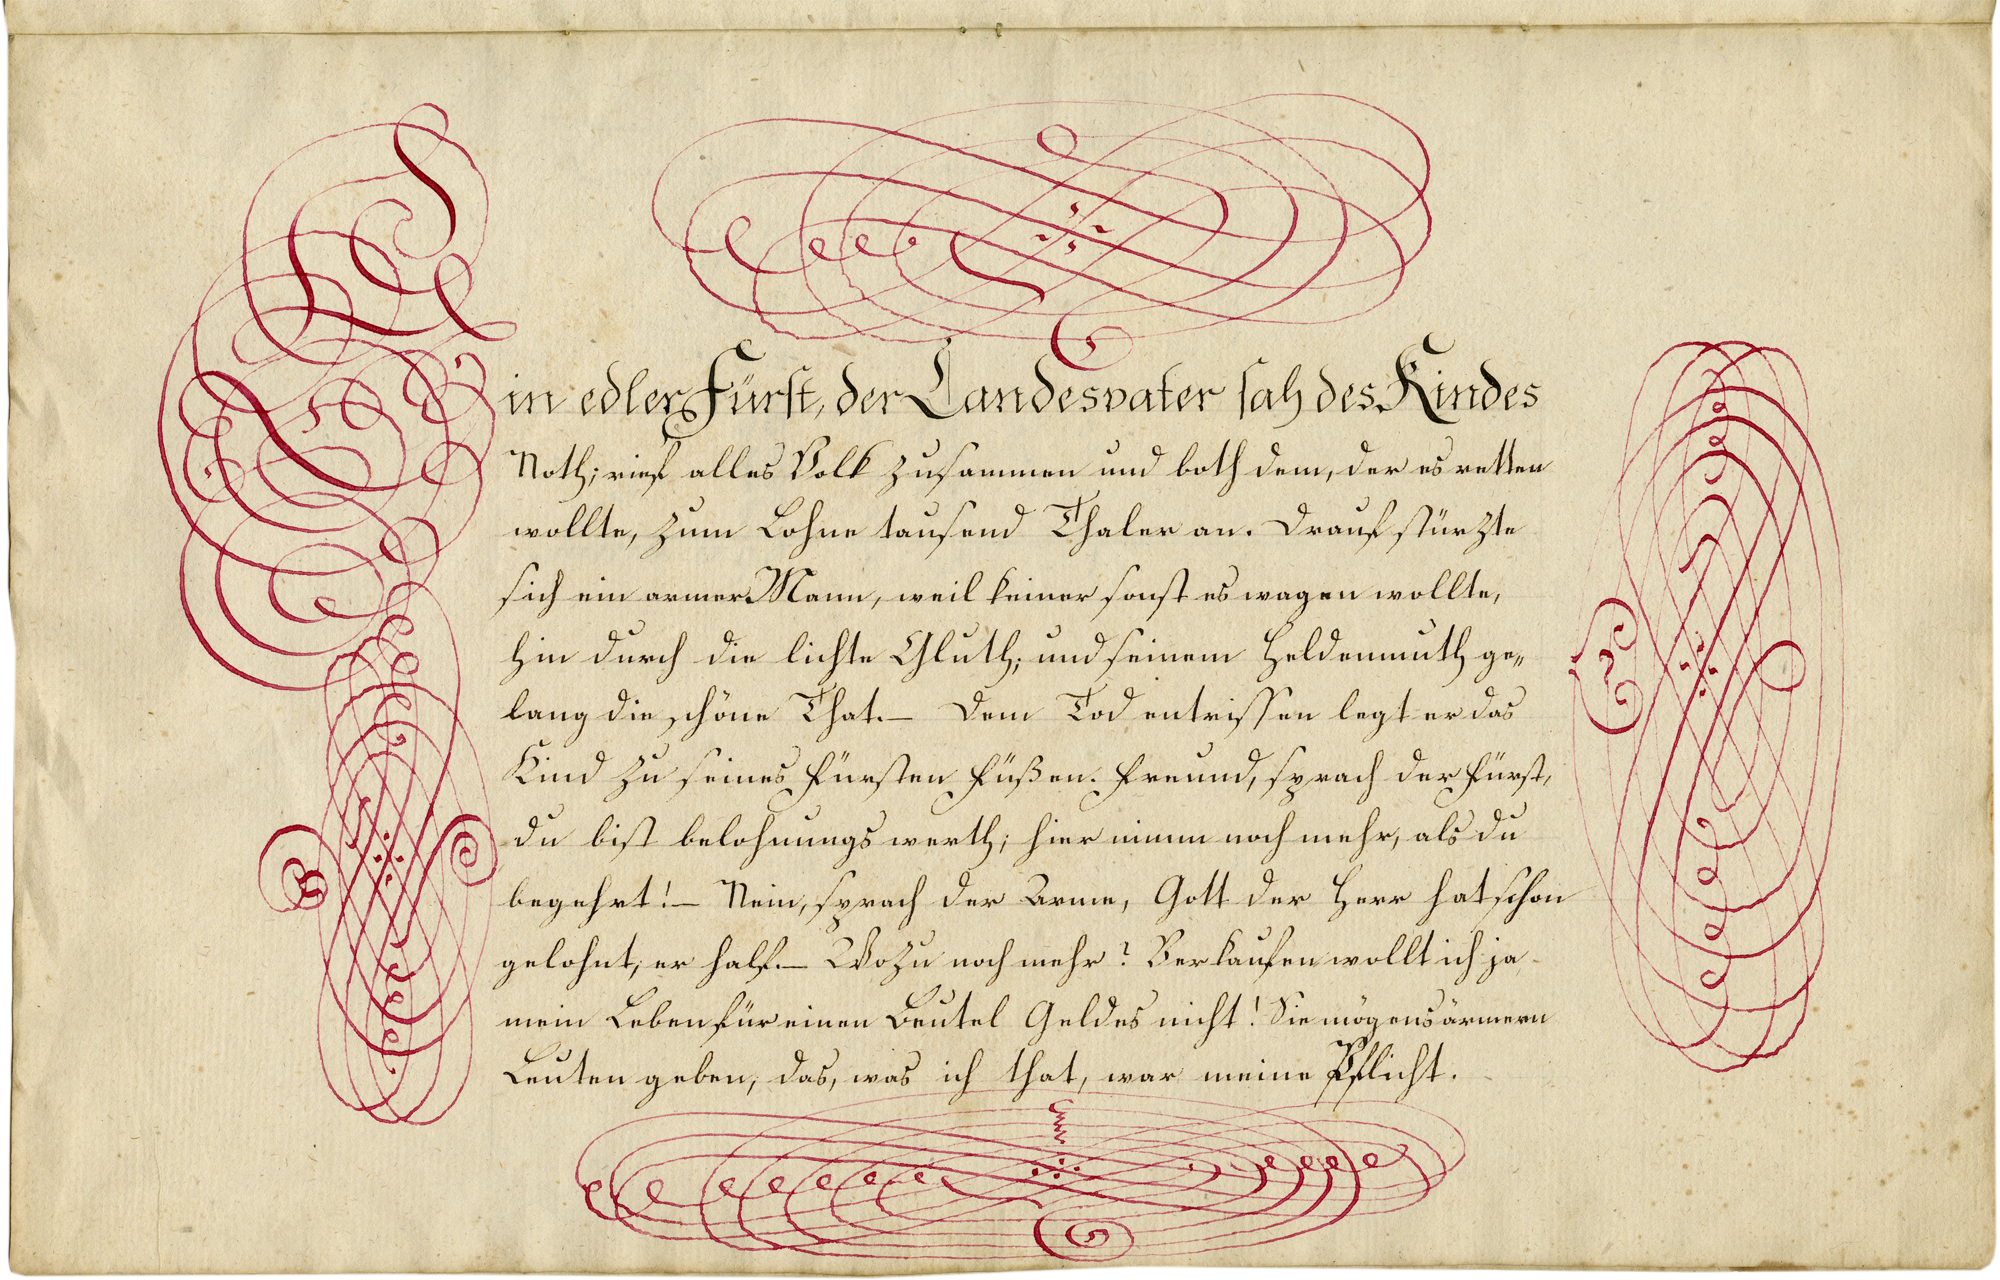 Ein edler Fürst, der Landesvater sah des Kindes
Noth; rief alles Volk zusammen und both dem, der es retten
wollte, zum Lohne tausend Thaler an. Drauf stürzte
sich ein armer Mann, weil keiner sonst es wagen wollte,
hin durch die lichte Gluth; und seinem Heldenmuth ge„
lang die schöne That. — Dem Tod entrissen legt er das
Kind zu seines Fürsten Füßen. Freund, sprach der Fürst,
du bist belohnungs werth; hier nimm noch mehr, als du
begehrt! — Nein, sprach der Arme, Gott der Herr hat schon
gelohnt; er half. — Wozu noch mehr? Verkaufen wollt ich ja
mein Leben für einen Beutel Geldes nicht! Sie mögens ärmern
Leuten geben; das, was ich that, war meine Pflicht.